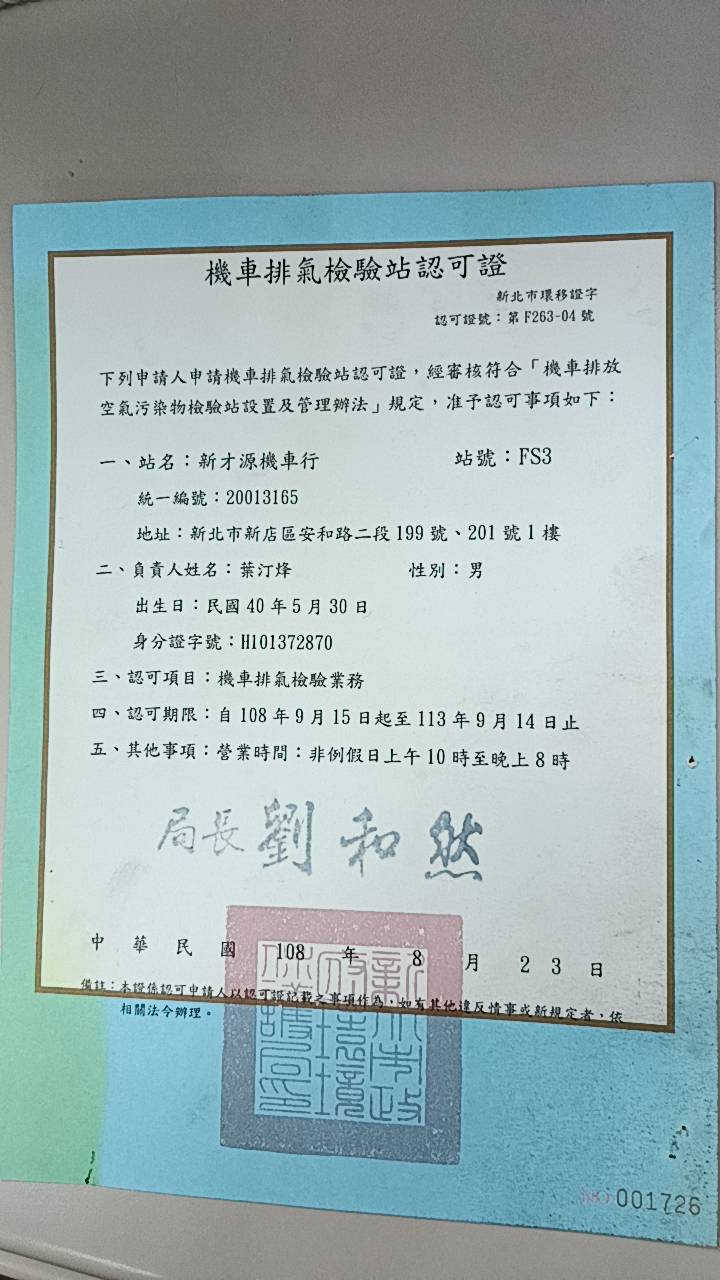 機車排氣檢驗站認可證
新北市環移證字
認可證號：第 F263-04 號
下列申請人申請機車排氣檢驗站認可證，經審核符合「機車排放
空氣污染物檢驗站設置及管理辦法」規定，准予認可事項如下：
一、站名：新才源機車行 站號：FS3
統一編號：20013165
地址：新北市新店區安和路二段 199 號、201 號 1 樓
二、負責人姓名：葉汀烽 性別：男
出生日：民國 40 年 5 月 30 日
身分證字號：H101372870
三、認可項目：機車排氣檢驗業務
四、認可期限：自 108 年 9 月 15 日起至 113 年 9 月 14 日止
五、其他事項：營業時間：非例假日上午 10 時至晚上 8 時
局長 劉和然
中華民國 108 年 8 月 23 日
備註：本證係認可申請人以認可證記載之事項作為，如有其他違反情事或新規定者，依
相關法令辦理。
新北市政府環境保護局印
NO 001726